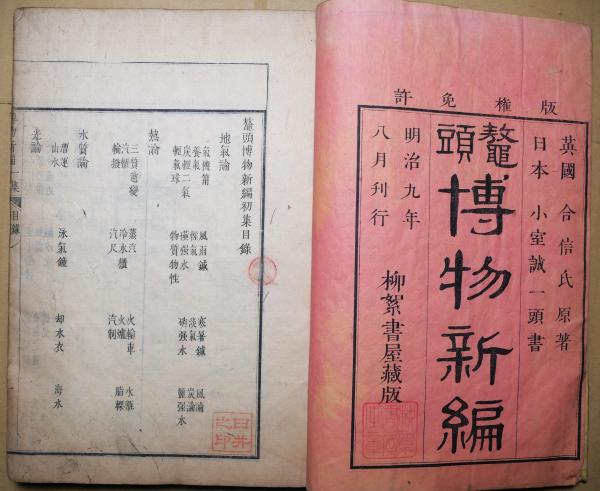 版權免許
英國 合信氏 原著
日本 小室誠一 頭書
鼇頭博物新編
明治九年
八月刊行
柳絮書屋藏版
鼇頭博物新編初集目錄
地氣論
氣機筩 風雨鍼 寒暑鍼 風論
養氣 淡氣 炭論
炭輕二氣 磺强水 硝强水 鹽强水
輕氣球 物質物性
熱論
三質遞變 蒸汽 火輪車
汽櫃 冷水櫃 火爐
輪撥 汽尺 汽制
水質論
潛運 泳氣鐘 却水衣 海水
山水
光論
臼井之印